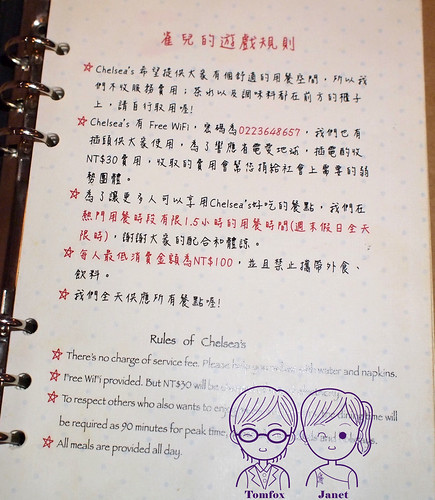 崔兒的遊戲規則
Chelsea's 希望提供大家有個舒適的用餐空間，所以我
們不收服務費用；茶水以及調味料都在前方的櫃子
上，請自行取用喔!
Chelsea's 有 Free WiFi，密碼為0223648657，我們也有
插頭供大家使用，為了響應省電愛地球，插電酌收
NT$30費用，收取的費用會幫您捐給社會上需要的弱
勢團體。
為了讓更多人可以享用Chelsea's好吃的餐點，我們在
熱門用餐時段有限1.5小時的用餐時間(週末假日全天
限時)，謝謝大家的配合和體諒。
每人最低消費金額為NT$100，並且禁止攜帶外食、
飲料。
我們全天供應所有餐點喔!
Rules of Chelsea's
There's no charge of service fee. Please help yourself with water and napkins.
Free WiFi provided. But NT$30 will be
To respect others who also wants to enjoy time will
be required as 90 minutes for peak time, and
All meals are provided all day.
Tomfox Janet